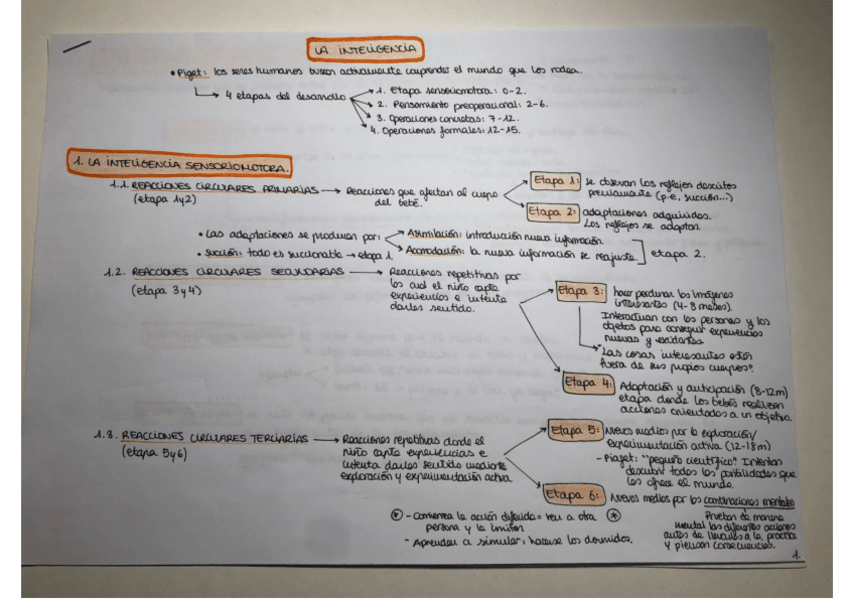 LA INTELIGENCIA
• Piaget: los seres humanos buscan activamente comprender el mundo que los rodea.
4 etapas del desarrollo
1. Etapa sensoriomotora: 0-2.
2. Pensamiento preoperacional: 2-6.
3. Operaciones concretas: 7-12.
4. Operaciones formales: 12-15.
1. LA INTELIGENCIA SENSORIOMOTORA.
1.1. REACCIONES CIRCULARES PRIMARIAS
(etapa 1y2)
Reacciones que afectan al cuerpo
del bebé.
Etapa 1: se observan los reflejos descritos
previamente (p.e, succión...)
Etapa 2: adaptaciones adquiridas.
Los reflejos se adaptan.
• Las adaptaciones se producen por:
Asimilación: introducción nueva información.
Acomodación: la nueva información se reajusta.
etapa 2.
• Succión: todo es succionable → etapa 1
1.2. REACCIONES CIRCULARES SECUNDARIAS
(etapa 3 y 4)
Reacciones repetitivas por
las cual el niño capta
experiencias e intenta
darles sentido.
Etapa 3: hacer perdurar las imágenes
interesantes (4-8 meses).
Interactúan con las personas y los
objetos para conseguir experiencias
nuevas y excitantes.
"Las cosas interesantes están
fuera de sus propios cuerpos".
Etapa 4: Adaptación y anticipación (8-12m)
etapa donde los bebés realizan
acciones orientadas a un objetivo.
1.3. REACCIONES CIRCULARES TERCIARIAS
(etapa 5y6)
Reacciones repetitivas donde el
niño capta experiencias e
intenta darles sentido mediante
exploración y experimentación activa.
Etapa 5: Nuevos medios por la exploración/
experimentación activa (12-18m)
- Piaget: "pequeño científico". Intentan
descubrir todas las posibilidades que
les ofrece el mundo.
Etapa 6: Nuevos medios por las combinaciones mentales
Prueban de manera
mental las diferentes acciones
antes de llevarlas a la práctica
y piensan consecuencias.
- Comienza la acción diferida = ven a otra
persona y la imitan
- Aprenden a simular: hacerse los dormidos.
1.